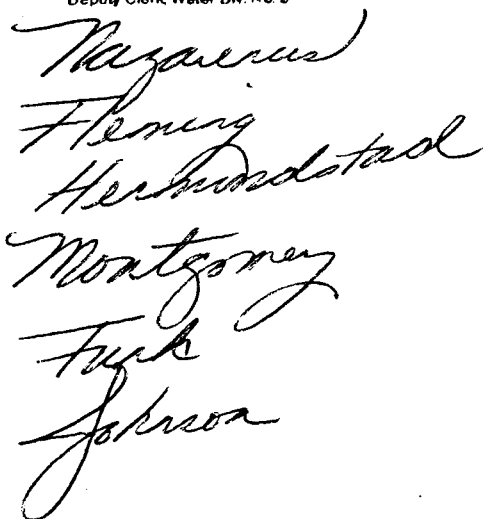 Deputy Clerk, Water Div. No. 2
Nazarenus
Fleming
Hermundstad
Montgomery
Funk
Johnson